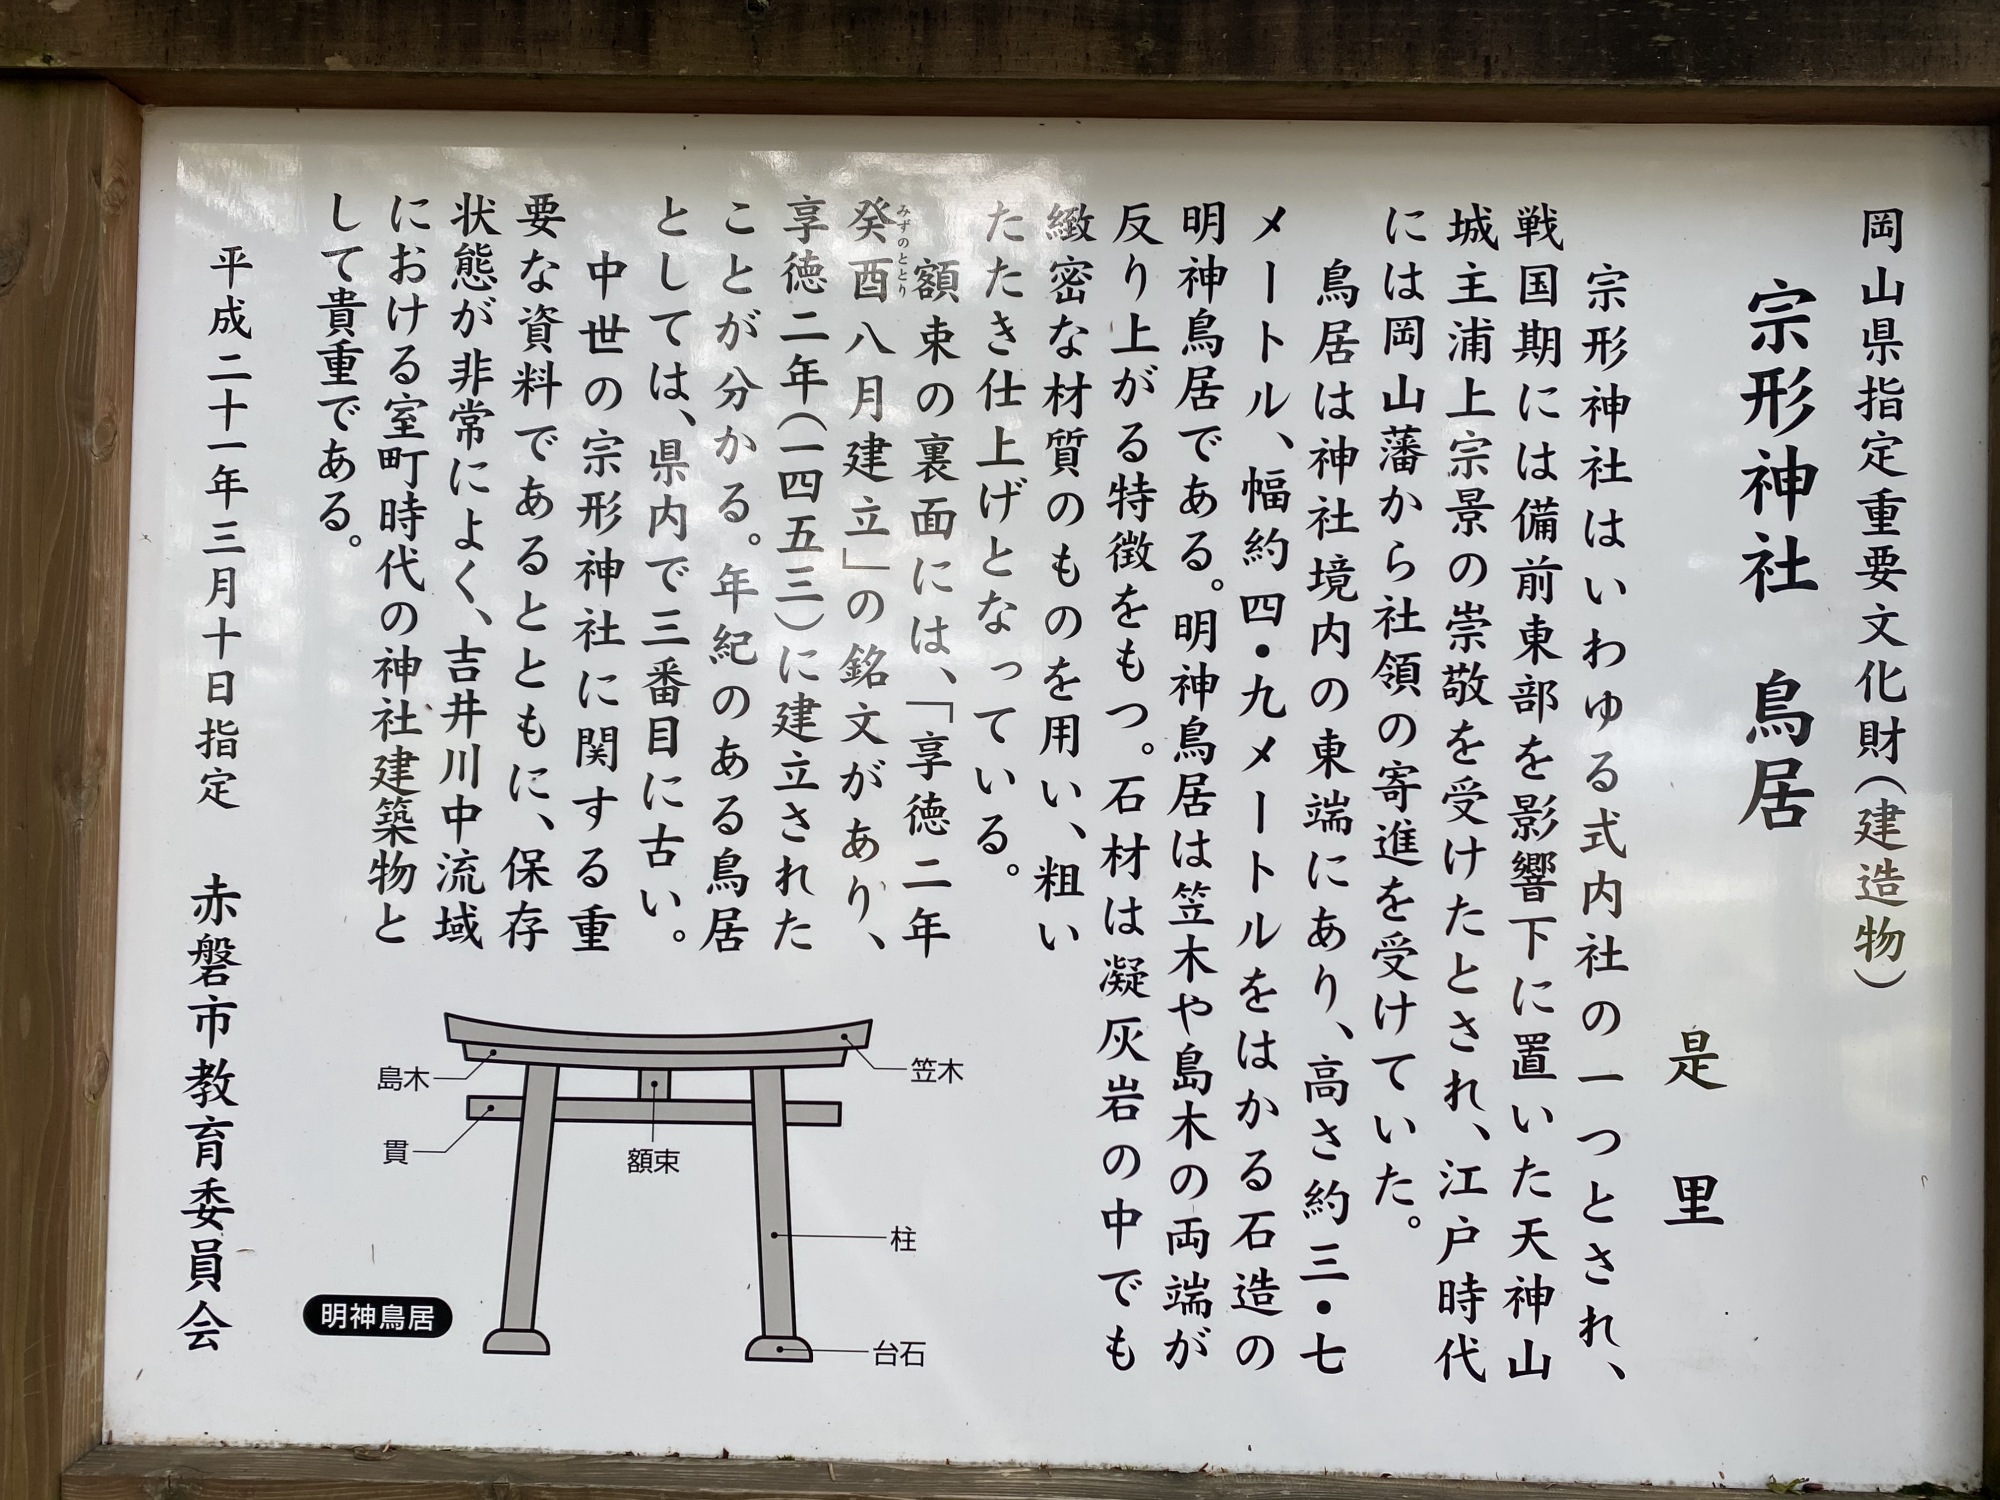 岡山県指定重要文化財(建造物)
宗形神社　鳥居
是　里
宗形神社はいわゆる式内社の一つとされ、
戦国期には備前東部を影響下に置いた天神山
城主浦上宗景の崇敬を受けたとされ、江戸時代
には岡山藩から社領の寄進を受けていた。
鳥居は神社境内の東端にあり、高さ約三・七
メートル、幅約四・九メートルをはかる石造の
明神鳥居である。明神鳥居は笠木や島木の両端が
反り上がる特徴をもつ。石材は凝灰岩の中でも
緻密な材質のものを用い、粗い
たたき仕上げとなっている。
額束の裏面には、「享徳二年
癸酉八月建立」の銘文があり、
みずのととり
享徳二年(一四五三)に建立された
ことが分かる。年紀のある鳥居
としては、県内で三番目に古い。
中世の宗形神社に関する重
要な資料であるとともに、保存
状態が非常によく、吉井川中流域
における室町時代の神社建築物と
して貴重である。
平成二十一年三月十日指定　赤磐市教育委員会
笠木
島木
貫
額束
柱
台石
明神鳥居